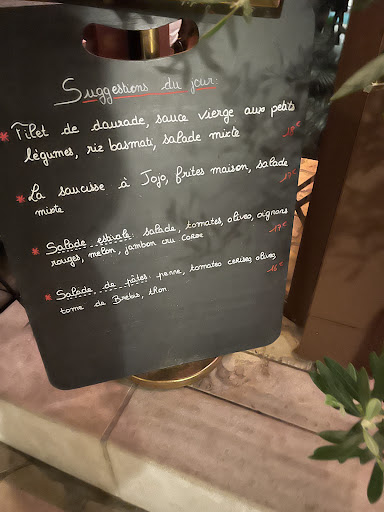 Suggestions du jour:
* Filet de daurade, sauce vierge aux petits
légumes, riz basmati, salade mixte 18€
* La saucisse à Jojo, frites maison, salade
mixte 17€
* Salade estivale: salade, tomates, olives, oignons
rouges, melon, jambon cru Corse 17€
* Salade de pâtes: penne, tomates cerises, olives,
tome de Brebis, thon. 16€